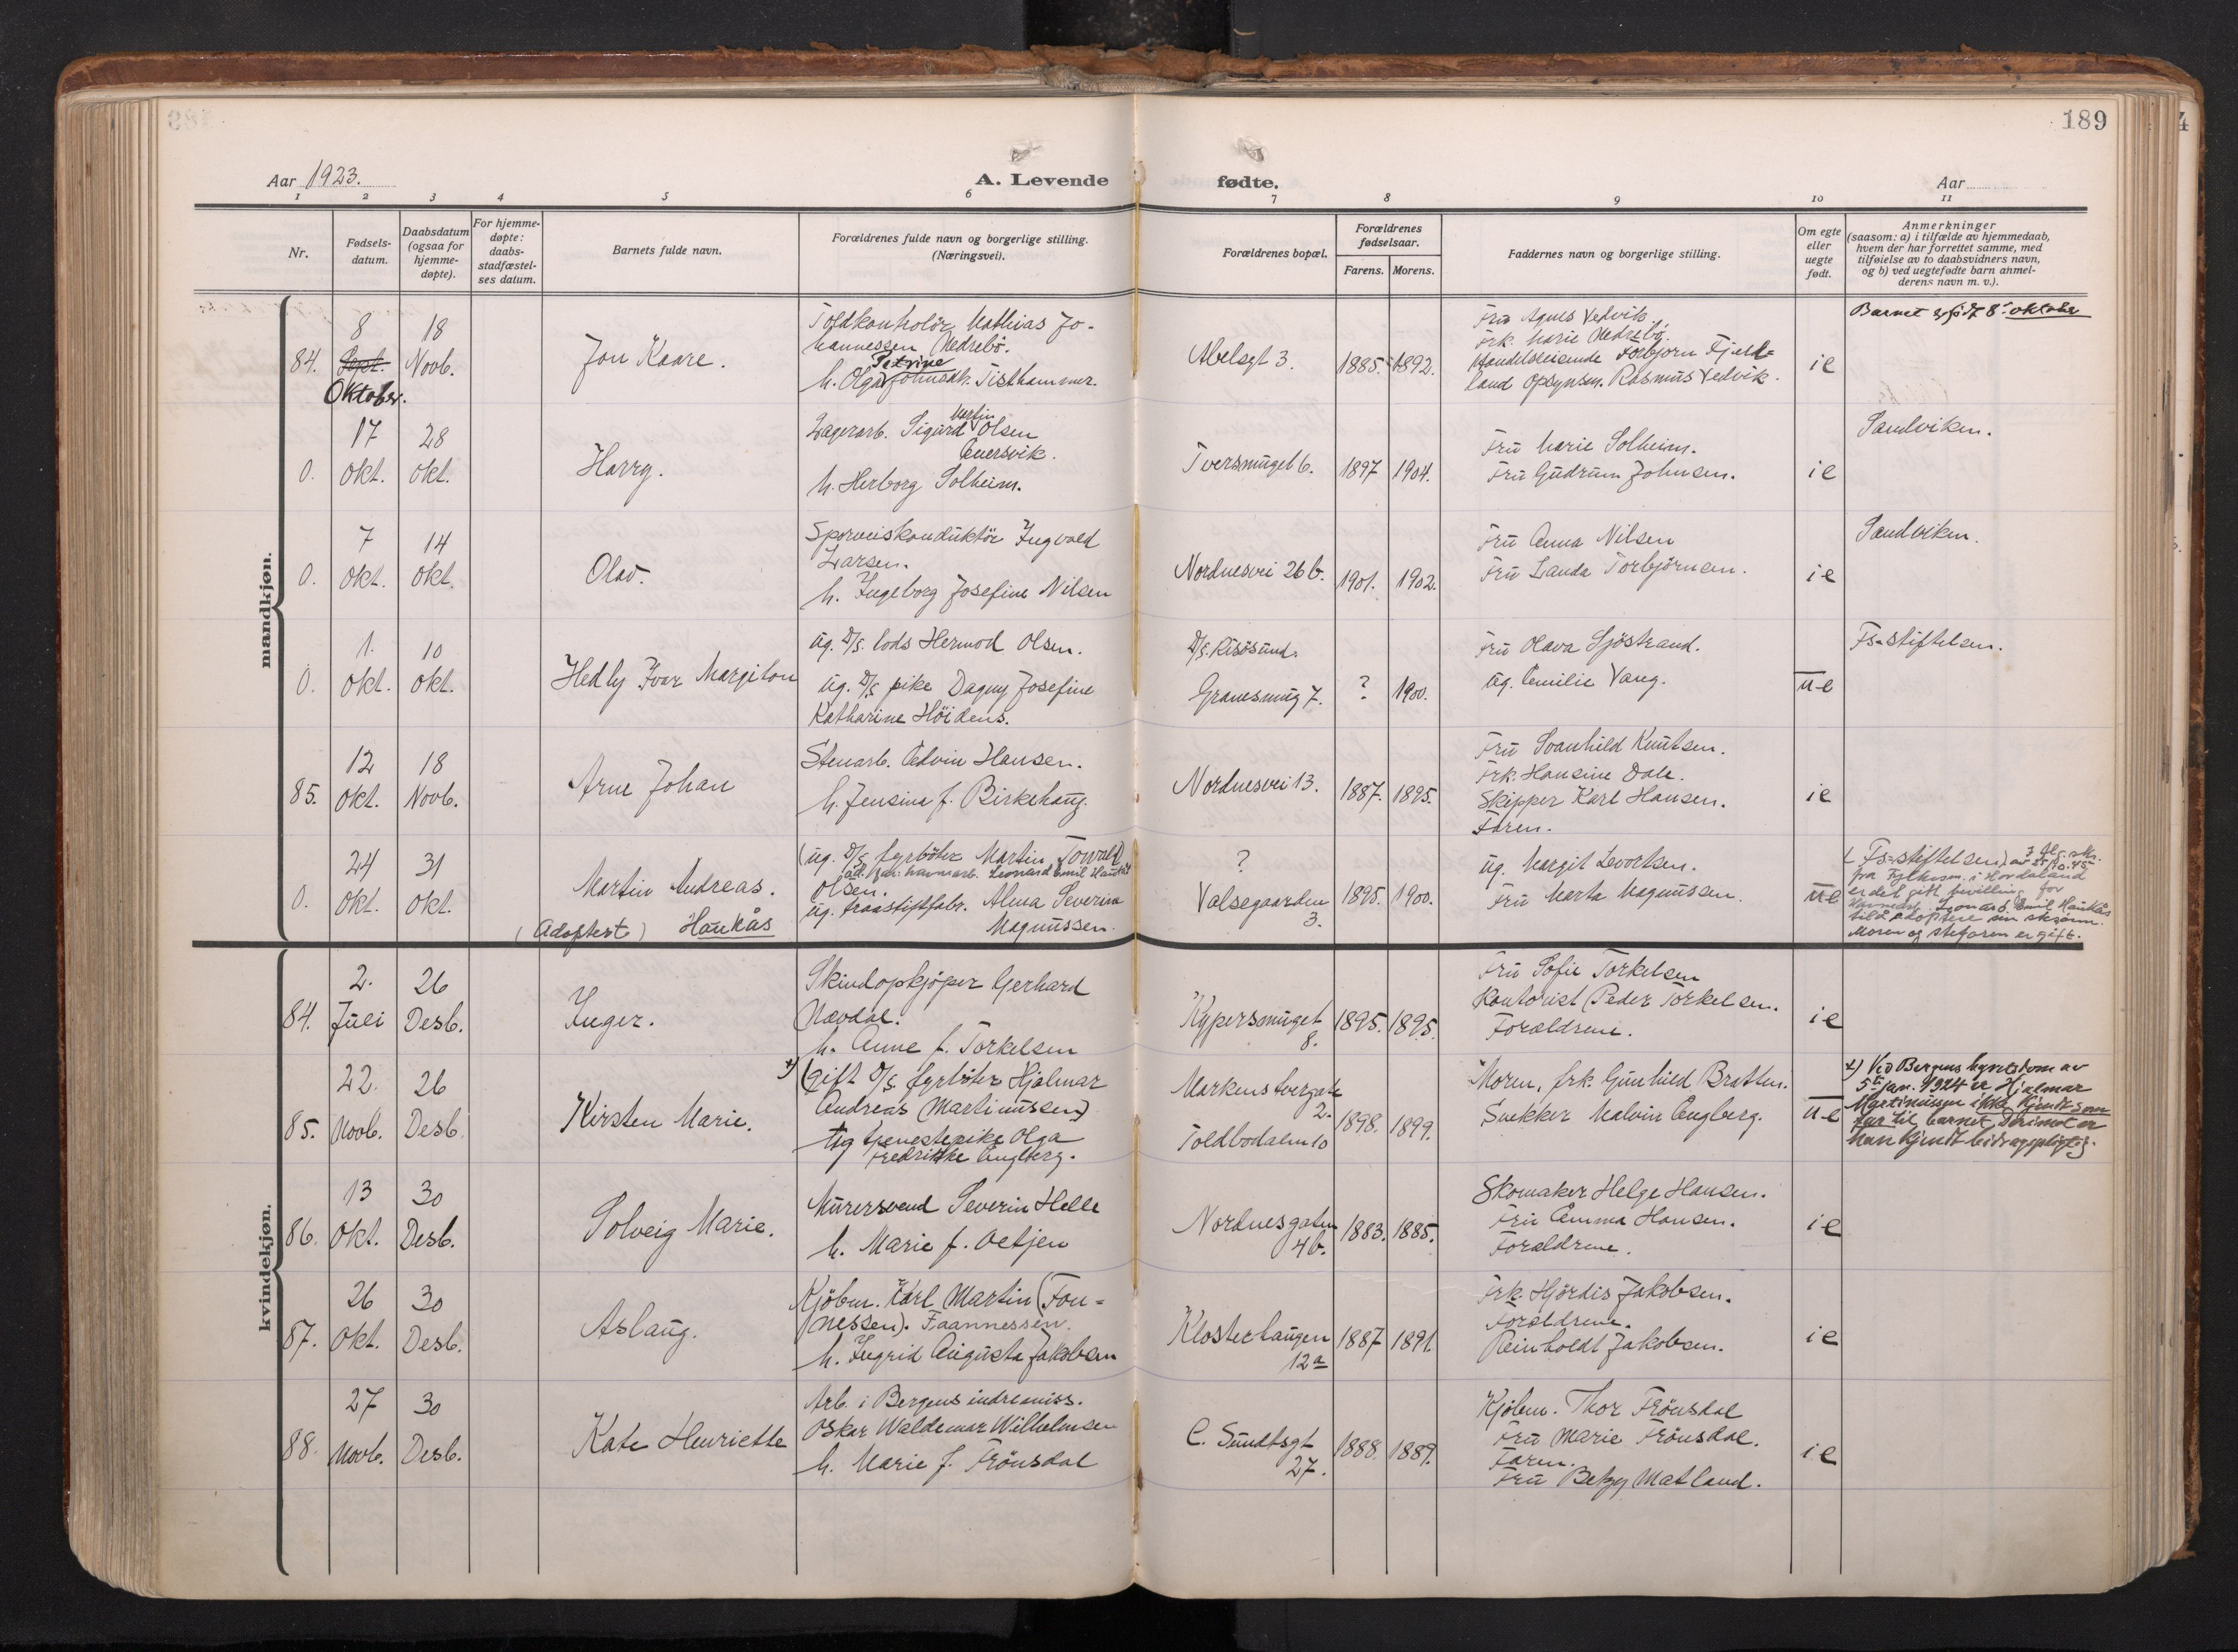 189
Aar 1923.
A. Levende fødte.
Aar
1 2 3 4 5 6 7 8 9 10 11
Nr.
Fødsels-
datum.
Daabsdatum
(ogsaa for
hjemme-
døpte).
For hjemme-
døpte:
daabs-
stadfæstel-
ses datum.
Barnets fulde navn.
Forældrenes fulde navn og borgerlige stilling.
(Næringsvei).
Forældrenes bopæl.
Forældrenes
fødselsaar.
Farens. Morens.
Faddernes navn og borgerlige stilling.
Om egte
eller
uegte
født.
Anmerkninger
(saasom: a) i tilfælde av hjemmedaab,
hvem der har forrettet samme, med
tilføielse av to daabsvidners navn,
og b) ved uegtefødte barn anmel-
derens navn m. v.).
mandkjøn.
84.
8
Sept.
Oktober.
18
Novb.
Jon Kaare.
Toldkontrolör Mathias Jo-
hannessen Nedrebö.
Petrine
h. Olga Johnsdk. Tisthammer.
Abelsgt 3.
1885. 1892.
Fru Agnes Vedvik.
Frk. Marie Nedrebö.
Handelsreisende Torbjorn Fjeld-
land Opsynsm. Rasmus Vedvik.
ie
Barnet er født 8' oktober
0.
17
Okt.
28
Okt.
Harry.
Martin
Lagerarb. Sigurd Olsen
Eversvik.
h. Herborg Solheim.
Tversmuget 6.
1897 1904.
Fru Marie Solheim.
Fru Gudrun Johnsen.
ie
Sandviken.
0.
7
Okt.
14
Okt.
Olav.
Sporveiskonduktör Ingvald
Larsen.
h. Ingeborg Josefine Nilsen
Nordnesvei 26 b.
1901. 1902.
Fru Anna Nilsen
Fru Landa Torbjörnsen.
ie
Sandviken.
0.
1.
Okt.
10
Okt.
Hedly Ivar Margiton
ug. D/s. lods Hermod Olsen.
ug. D/s pike Dagny Josefine
Katharine Höidens.
D/s. Risösund.
Granesmug 7.
? 1900.
Fru Olava Sjöstrand.
ug. Emilie Vang.
u-e
Fs-stiftelsen.
85.
12
Okt.
18
Novb.
Arne Johan
Stenarb. Edvin Hansen.
h. Jensina f. Birkehaug.
Nordnesvei 13.
1887. 1895.
Fru Svanhild Knutsen.
Frk. Hansine Dale.
Skipper Karl Hansen.
Faren.
ie
0.
24
Okt.
31
Okt.
Martin Andreas.
(Adoptert) Haukås
(ug. D/s fyrböter Martin Torvald
Leonard Emil Haukås
Olsen.
ug. traastiftfabr. Alma Severina
Magnussen.
?
Valsegaarden
3.
1895. 1900.
ug. Margit Levortsen.
Fru Marta Magnussen.
ue
(Fs-stiftelsen)
fra Fylkesm. i Hordaland
er det gitt bevilling for
Havnearb. Leonard Emil Haukås
til å adoptere sin stesønn.
Moren og stefaren er gift.
kvindekjøn.
84.
2.
Juli
26
Desb.
Inger.
Skindopkjöper Gerhard
Nævdal.
h. Anne f. Torkelsen
Kypersmuget
8.
1895. 1895.
Fru Sofie Torkelsen
Kontorist Peder Torkelsen.
Forældrene.
ie
85.
22.
Novb.
26
Desb.
Kirsten Marie.
x) (Gift D/s fyrböter Hjalmar
Andreas Martinussen)
ug tjenestepike Olga
Fredrikke Engberg.
Markens tvergate
2.
Toldbodalm 10
1898. 1899.
Moren, frk. Gunhild Bratten.
Snekker Malvin Engberg.
u-e
x) Ved Bergens byretsdom av
5te jan. 1924 er Hjalmar
Martinussen ikke kjendt som
far til barnet. Derimot er
han kjendt bidragspligtig.
86.
13
Okt.
30
Desb.
Solveig Marie.
Murersvend Severin Helle
h. Marie f. Oetjen
Nordnesgaten
4b.
1883. 1885.
Skomaker Helge Hansen.
Fru Emma Hansen.
Forældrene.
ie
87.
26
Okt.
30
Desb.
Aslaug.
Kjöbm. Karl Martin (Fon-
nessen). Faannessen.
h. Ingrid Augusta Jakobsen
Klosterhaugen
12a
1887 1891.
Frk. Hjördis Jakobsen.
Forældrene.
Reinholdt Jakobsen.
ie
88.
27
Novb.
30
Desb.
Kate Henriette
Arb. i Bergens indremiss.
Oskar Waldemar Wilhelmsen
h. Marie f. Frönsdal
C. Sundtsgt
27.
1888. 1889.
Kjöbm. Thor Frönsdal
Fru Marie Frönsdal.
Faren.
Fru Betzy Matland.
ie